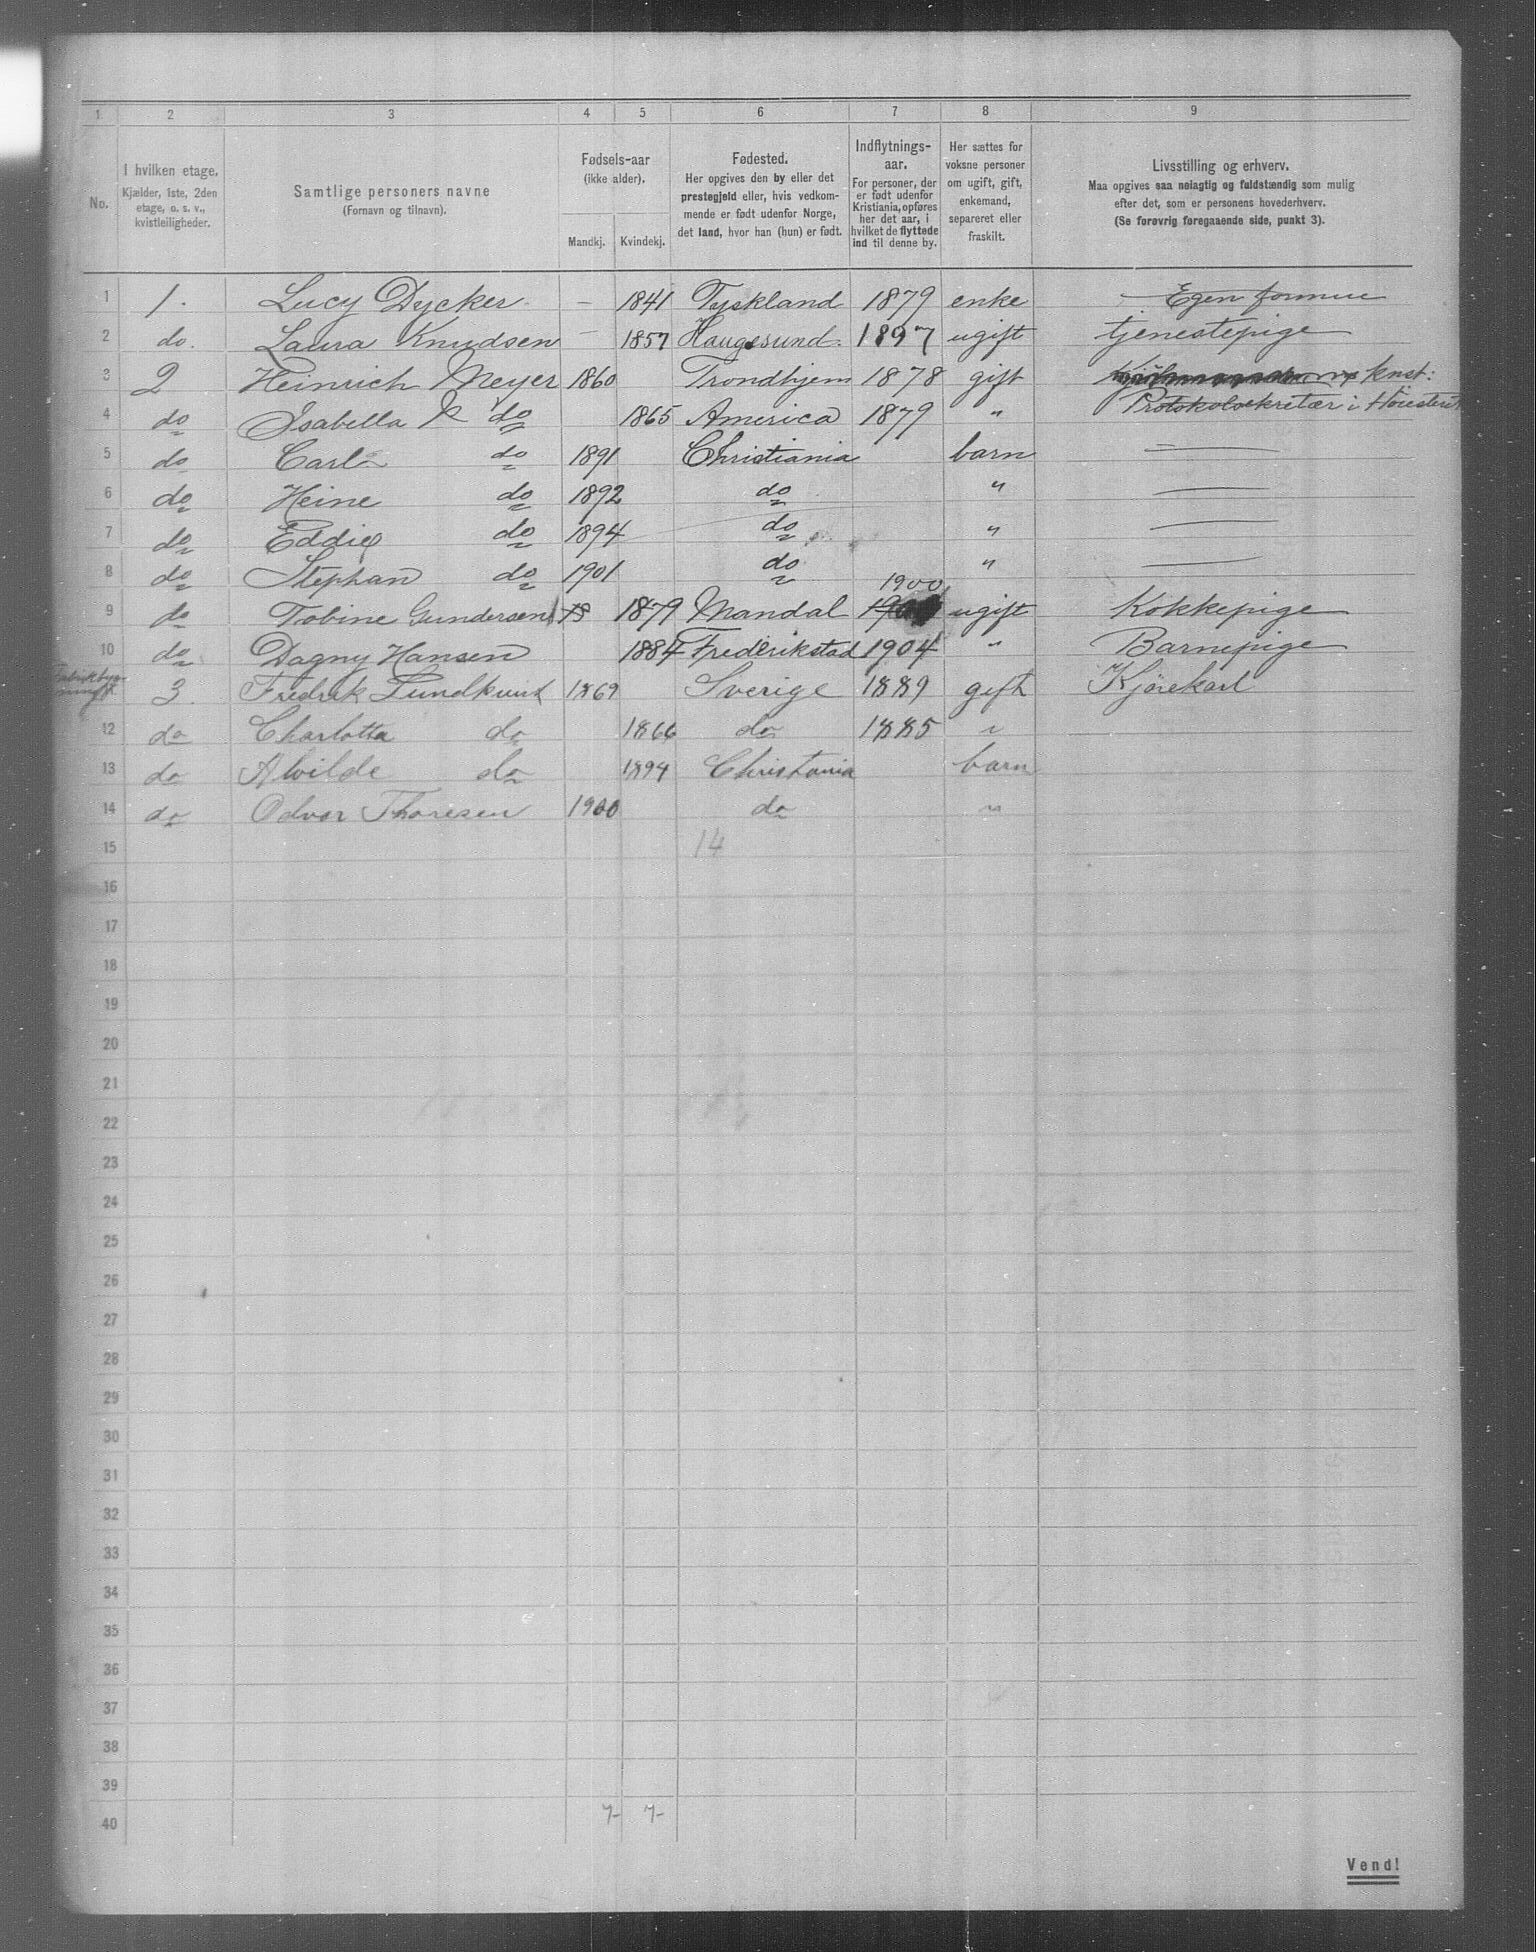 1 2 3 4 5 6 7 8 9
No.
I hvilken etage.
Kjælder, 1ste, 2den
etage, o. s. v.,
kvistleiligheder.
Samtlige personers navne
(Fornavn og tilnavn).
Fødsels-aar
(ikke alder).
Mandkj. Kvindekj.
Fødested.
Her opgives den by eller det
prestegjeld eller, hvis vedkom-
mende er født udenfor Norge,
det land, hvor han (hun) er født.
Indflytnings-
aar.
For personer, der
er født udenfor
Kristiania, opføres
her det aar, i
hvilket de flyttede
ind til denne by.
Her sættes for
voksne personer
om ugift, gift,
enkemand,
separeret eller
fraskilt.
Livsstilling og erhverv.
Maa opgives saa nøiagtig og fuldstændig som mulig
efter det, som er personens hovederhverv.
(Se forøvrig foregaaende side, punkt 3).
1 1. Lucy Dycker. – 1841 Tyskland 1879 enke Egen formue
2 do. Laura Knudsen – 1857 Haugesund. 1897 ugift tjenestepige
3 2 Heinrich Meyer 1860 Trondhjem 1878 gift knst:
4 do Isabella K do 1865 America 1879 " Protokolsekretær i Høiesteret
5 do Carl do 1891 Christiania barn —
6 do Heine do 1892 do " —
7 do Eddie do 1894 do " —
8 do Stephan do 1901 do " —
1900
9 do Tobine Gundersen 18 1879 Mandal ugift Kokkepige
10 do Dagny Hansen 1884 Frederikstad 1904 " Barnepige
3. Fredrik Lundkunt 1869 Sverige 1889 gift Kjørekarl
12 do Charlotta do 1866 do 1885 "
13 do Alvilde do 1894 Christania barn
14 do Odvar Thoresen 1900 do "
15 14
16
17
18
19
20
21
22
23
24
25
26
27
28
29
30
31
32
33
34
35
36
37
38
39
40 7- 7-
Vend!